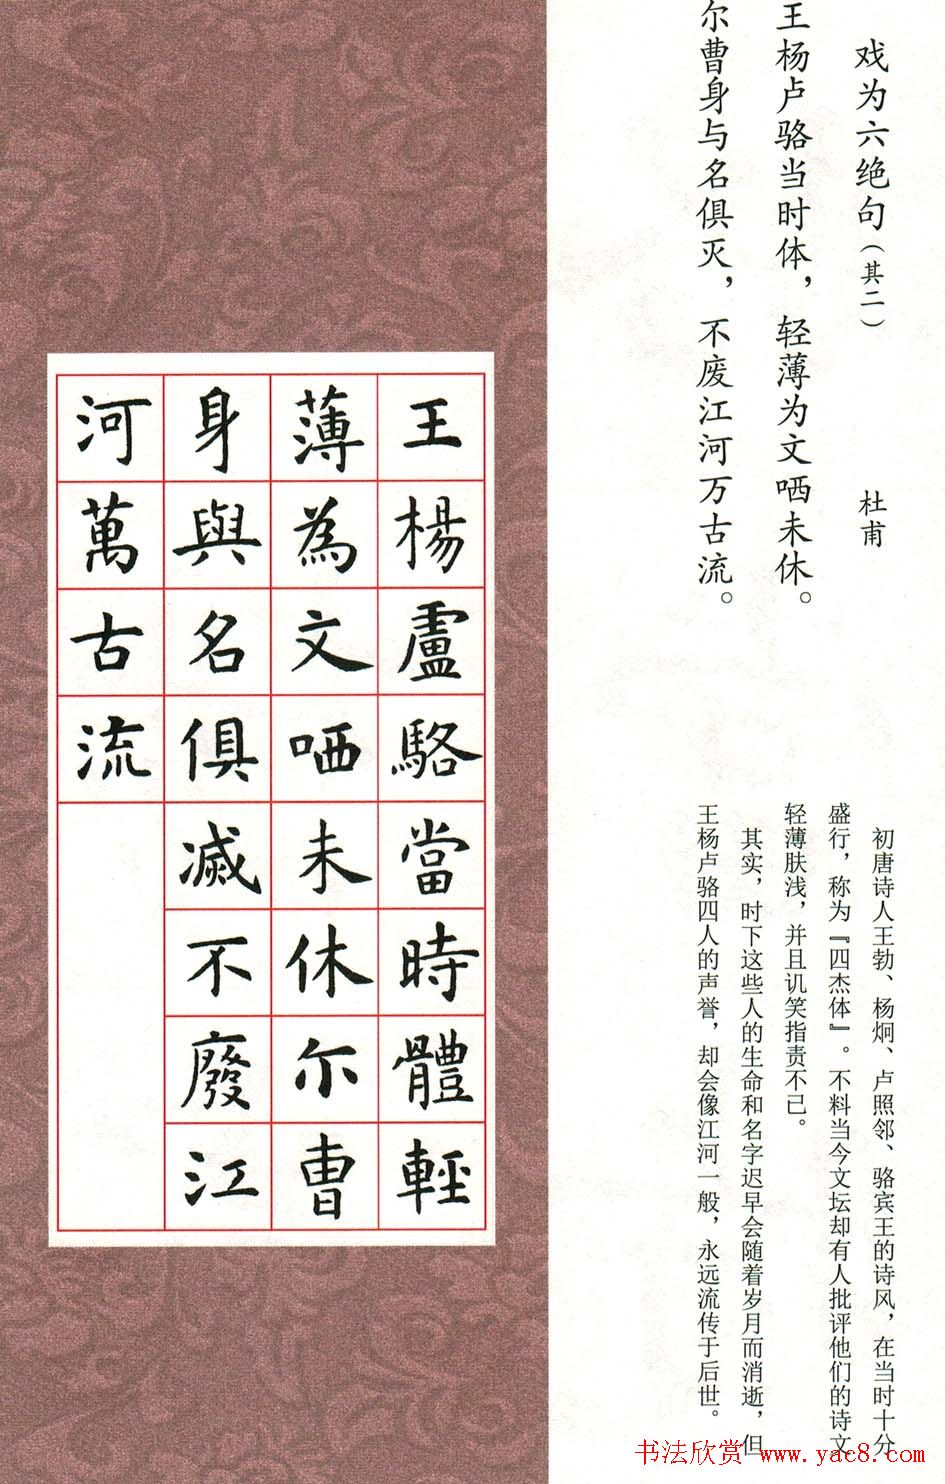 戏为六绝句（其二）
杜甫
王杨卢骆当时体，轻薄为文哂未休。
尔曹身与名俱灭，不废江河万古流。
初唐诗人王勃、杨炯、卢照邻、骆宾王的诗风，在当时十分
盛行，称为『四杰体』。不料当今文坛却有人批评他们的诗文
轻薄肤浅，并且讥笑指责不已。
其实，时下这些人的生命和名字迟早会随着岁月而消逝，但
王杨卢骆四人的声誉，却会像江河一般，永远流传于后世。
王楊盧駱當時體輕
薄為文哂未休尓曹
身與名俱滅不廢江
河萬古流
书法欣赏 www.yac8.com